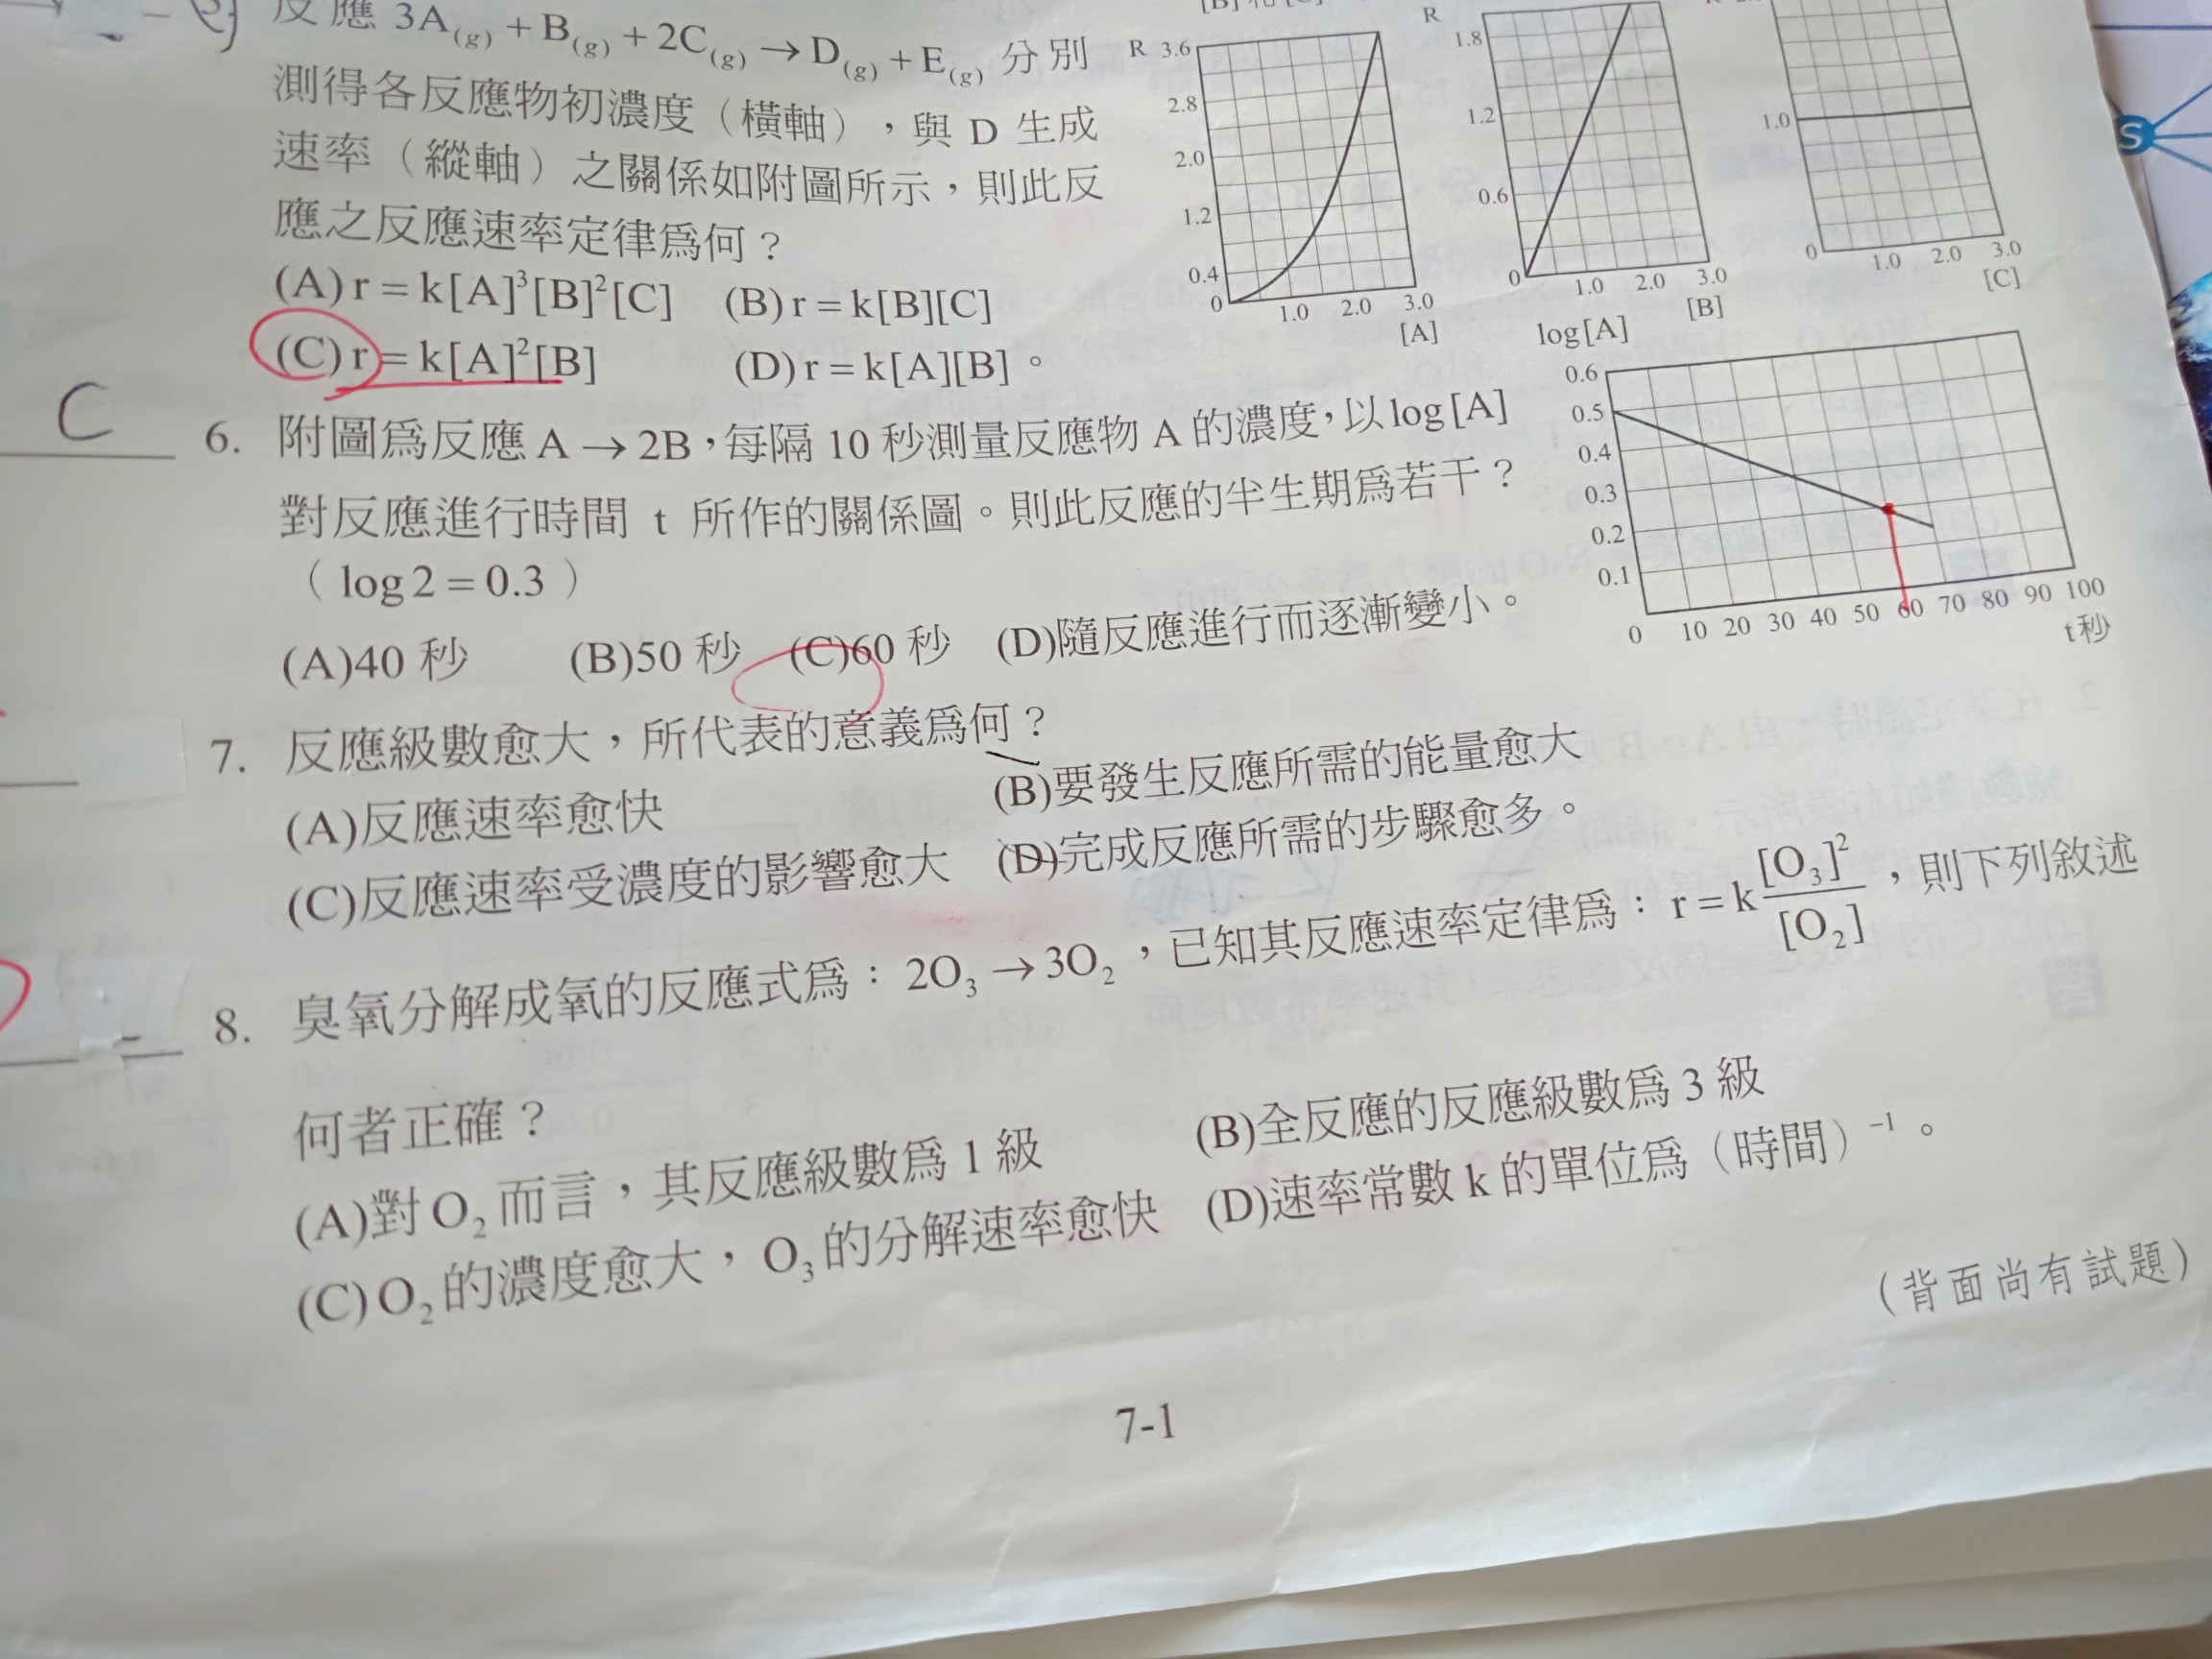 反應 3A(g) + B(g) + 2C(g) → D(g) + E(g) 分別
測得各反應物初濃度（橫軸），與 D 生成
速率（縱軸）之關係如附圖所示，則此反
應之反應速率定律為何？
(A) r = k[A]³[B]²[C] (B) r = k[B][C]
(C) r = k[A]²[B] (D) r = k[A][B]。
R 3.6
2.8
2.0
1.2
0.4
0 1.0 2.0 3.0
[A]
R
1.8
1.2
0.6
0 1.0 2.0 3.0
[B]
1.0
0 1.0 2.0 3.0
[C]
C
6. 附圖為反應 A → 2B，每隔 10 秒測量反應物 A 的濃度，以 log[A]
對反應進行時間 t 所作的關係圖。則此反應的半生期為若干？
（log2 = 0.3）
(A)40 秒 (B)50 秒 (C)60 秒 (D)隨反應進行而逐漸變小。
log[A]
0.6
0.5
0.4
0.3
0.2
0.1
0 10 20 30 40 50 60 70 80 90 100
t秒
7. 反應級數愈大，所代表的意義為何？
(A)反應速率愈快 (B)要發生反應所需的能量愈大
(C)反應速率受濃度的影響愈大 (D)完成反應所需的步驟愈多。
8. 臭氧分解成氧的反應式為：2O₃ → 3O₂，已知其反應速率定律為：r = k [O₃]²/[O₂]，則下列敘述
何者正確？
(A)對 O₂ 而言，其反應級數為 1 級 (B)全反應的反應級數為 3 級
(C)O₂ 的濃度愈大，O₃ 的分解速率愈快 (D)速率常數 k 的單位為（時間）⁻¹。
（背面尚有試題）
7-1
S